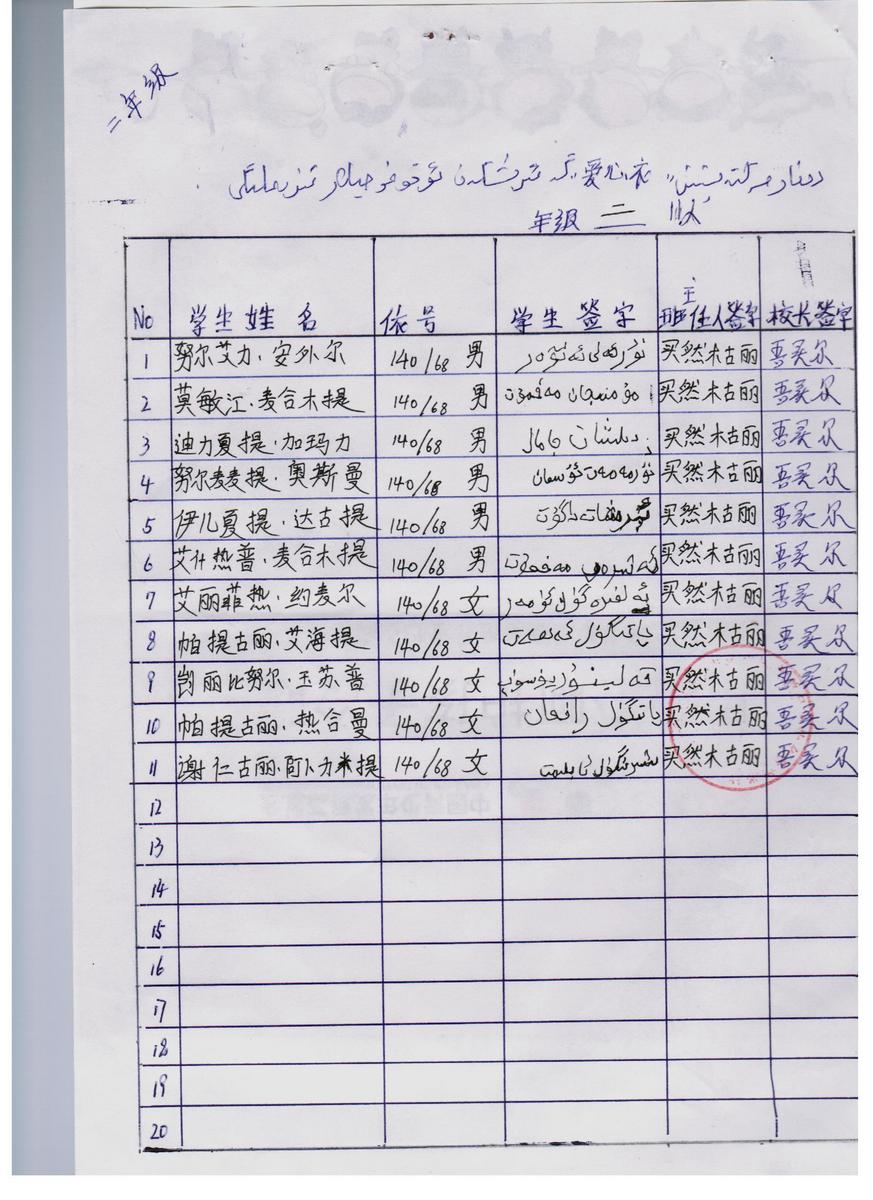 二年级
爱心衣
年级 二
No 学生姓名 依号 学生签字 班主任人签字 校长签字
1 努尔艾力·安外尔 140/68 男 نۇرئەلى ئەنۋەر 买然木古丽 吾买尔
2 莫敏江·麦合木提 140/68 男 مۇمىنجان مەخمۇت 买然木古丽 吾买尔
3 迪力夏提·加玛力 140/68 男 دىلشات جامال 买然木古丽 吾买尔
4 努尔麦麦提·奥斯曼 140/68 男 نۇرمەمەت ئوسمان 买然木古丽 吾买尔
5 伊儿夏提·达古提 140/68 男 买然木古丽 吾买尔
6 艾什热普·麦合木提 140/68 男 买然木古丽 吾买尔
7 艾丽菲热·约麦尔 140/68 女 买然木古丽 吾买尔
8 帕提古丽·艾海提 140/68 女 پاتىگۈل ئەھەت 买然木古丽 吾买尔
9 凯丽比努尔·玉苏普 140/68 女 买然木古丽 吾买尔
10 帕提古丽·热合曼 140/68 女 پاتىگۈل راخمان 买然木古丽 吾买尔
11 谢仁古丽·阿卜力米提 140/68 女 买然木古丽 吾买尔
12
13
14
15
16
17
18
19
20